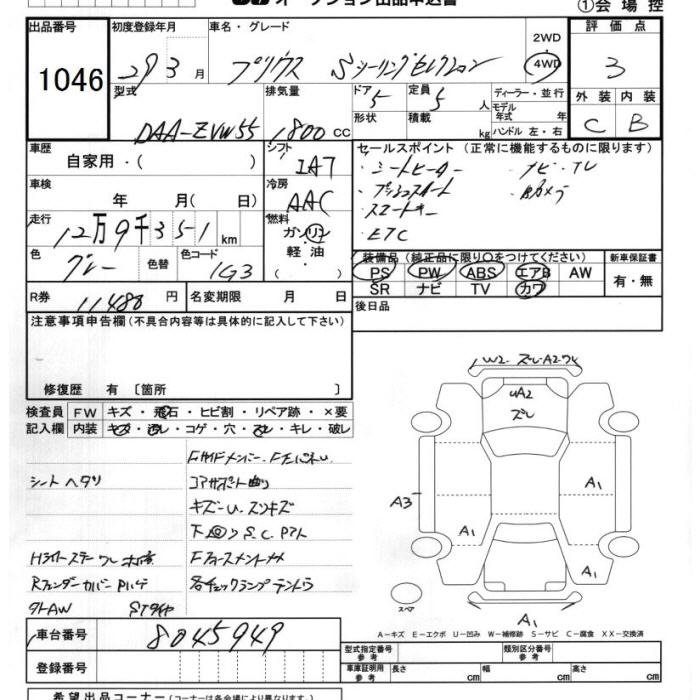 オークション出品申込書
①会場控
出品番号 初度登録年月 車名・グレード 2WD 評価点
1046 29 3月 プリウス Sツーリングセレクション 4WD 3
型式 排気量 ドア 定員 ディーラー・並行 外装 内装
DAA-ZVW55 1800cc 5 5人 モデル年式 年 C B
形状 積載 kg ハンドル 左・右
車歴 シフト セールスポイント (正常に機能するものに限ります)
自家用・( ) IAT ・シートヒーター ・ナビ・TV
車検 冷房 ・プッシュスタート ・Bカメラ
年 月(日) AAC ・スマートキー
走行 燃料 ・ETC
12万9千351km ガソリン
軽・油
色 色替 色コード 装備品 (純正品に限り○をつけてください) 新車保証書
グレー 1G3 PS PW ABS エアB AW 有・無
SR ナビ TV カワ
R券 11480円 名変期限 月 日 後日品
注意事項申告欄(不具合内容等は具体的に記入して下さい)
修復歴 有 [箇所 ]
検査員 FW キズ・飛石・ヒビ割・リペア跡・×要
記入欄 内装 キズ・汚レ・コゲ・穴・スレ・キレ・破レ
W2 ズレ・A2ワレ
UA2
ズレ
Fサイドメンバー
シートヘタリ コアサポート曲り
キズ・U・スリキズ
下回りS.C.
Hライトステーワレ
Rフェンダーカバー
各チェックランプテントウ
外AW
A3
A1
A1
A1
A1
スペア
A-キズ E-エクボ U-凹み W-補修跡 S-サビ C-腐食 XX-交換済
車台番号 8045949
型式指定番号参考 類別区分番号参考
登録番号
車庫証明用参考 長さ cm 幅 cm 高さ cm
希望出品コーナー(コーナーは各会場により異なります。)